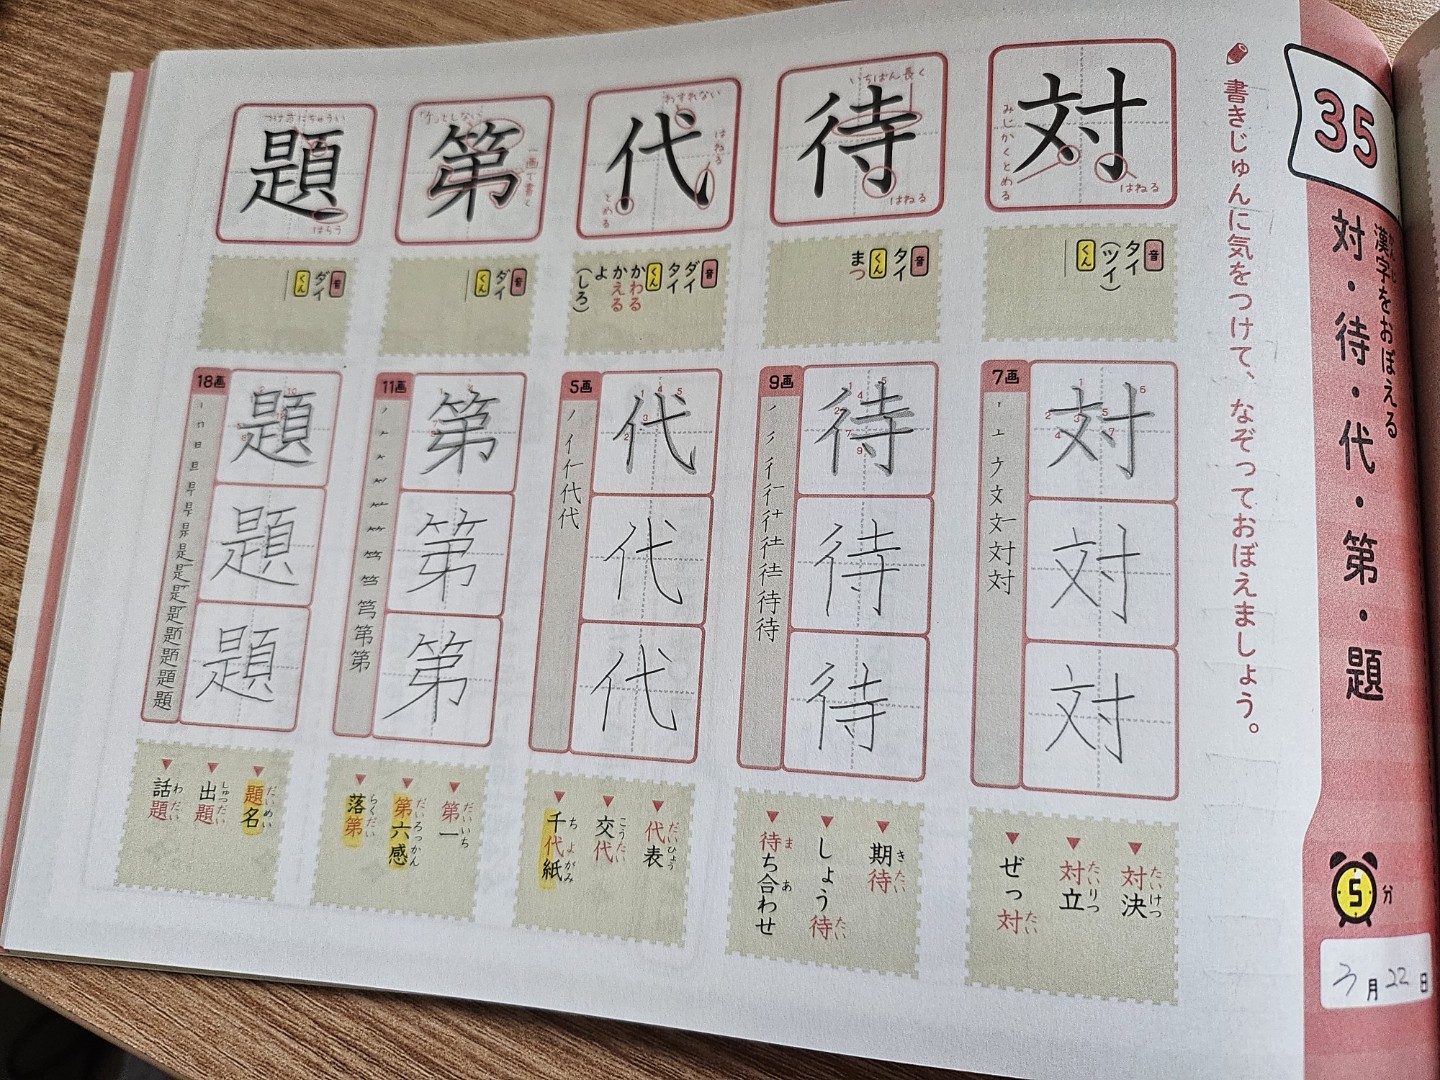 35
漢字をおぼえる
対・待・代・第・題
5分
3月22日
書きじゅんに気をつけて、なぞっておぼえましょう。
対
みじかくとめる
はねる
音
タイ
(ツイ)
くん
7画
対
対
対
対決
たいけつ
対立
たいりつ
ぜっ対
たい
待
いちばん長く
はねる
音
タイ
くん
まつ
9画
待
待
待
期待
きたい
しょう待
たい
待ち合わせ
ま
あ
代
わすれない
はねる
とめる
音
ダイ
タイ
くん
かわる
かえる
よ
(しろ)
5画
代
代
代
代表
だいひょう
交代
こうたい
千代紙
ちよがみ
第
一画で書く
音
ダイ
くん
11画
第
第
第
第一
だいいち
第六感
だいろっかん
落第
らくだい
題
つけ方にちゅうい
はらう
音
ダイ
くん
18画
題
題
題
題名
だいめい
出題
しゅつだい
話題
わだい